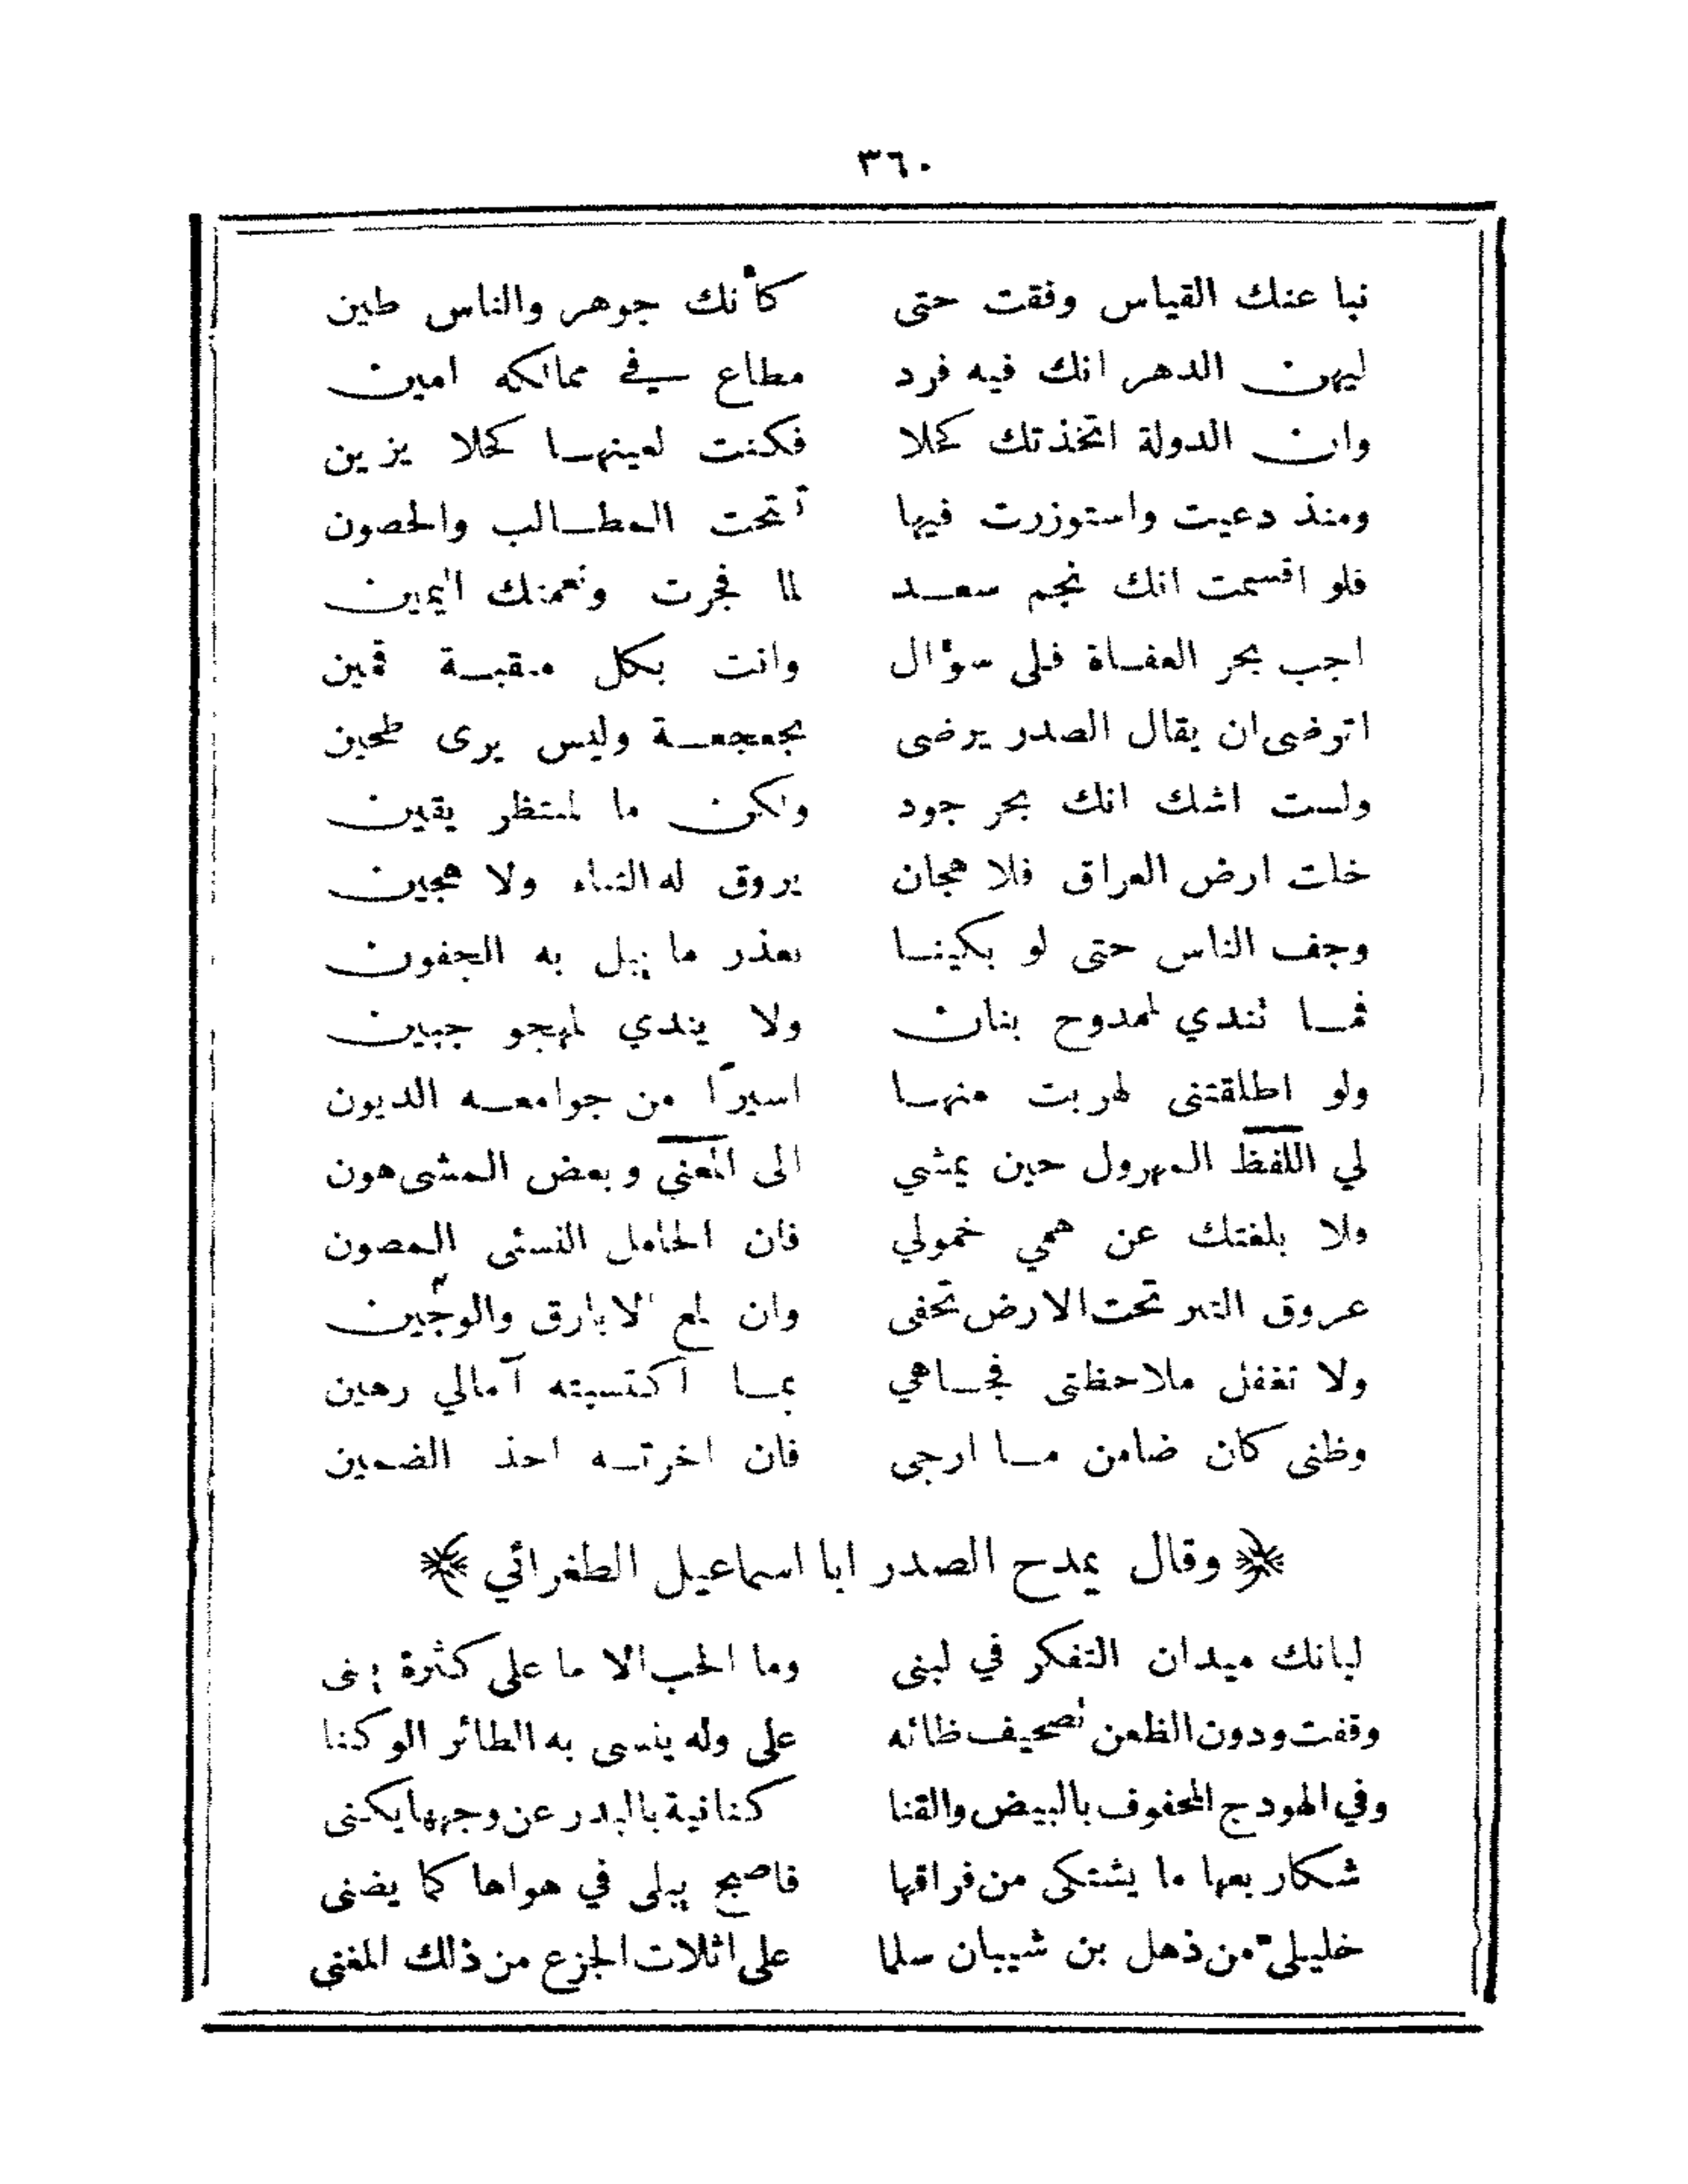 ٣٦٠
نبا عنك القياس وفقت حتى كأنك جوهر والناس طين
ليهن الدهر انك فيه فرد مطاع في ممالكه امين
وان الدولة اتخذتك كحلا فكنت لعينها كحلا يزين
ومنذ دعيت واستوزرت فيها المطالب والحصون
فلو اقسمت انك نجم سعد لما فجرت ونعمتك اليمين
اجب بحر العفاة فلى سؤال وانت بكل منقبة قمين
اترضى ان يقال الصدر يرضى بجعجعة وليس يرى طحين
ولست اشك انك بحر جود ولكن ما لمنتظر يقين
خلت ارض العراق فلا هجان يروق له الثناء ولا هجين
وجف الناس حتى لو بكينا تعذر ما يبل به الجفون
فما تندي لممدوح بنان ولا يندي لمهجو جبين
ولو اطلقتنى لهربت منها اسيرًا من جوامعه الديون
لي اللفظ المهرول حين يمشي الى المعني وبعض المشى هون
ولا بلفتك عن همي خمولي فان الخامل النسئى المصون
عروق التبر تحت الارض تخفى وان لمع الابارق والوجين
ولا تغفل ملاحظتى فجاهي بما اكتسيته آمالي رهين
وظنى كان ضامن ما ارجى فان اخرته احذ الضمين
﴿ وقال يمدح الصدر ابا اسماعيل الطغرائي ﴾
لبانك ميدان التفكر في لبنى وما الحب الا ما على كثرة
وقفت ودون الظعن تصحيف ظائه على وله ينسى به الطائر الوكنا
وفي الهودج المحفوف بالبيض والقنا كنانية بالبدر عن وجهها يكنى
شكا ربعها ما يشتكى من فراقها فاصبح يبلى في هواها كما يضنى
خليلى من ذهل بن شيبان سلما على اثلات الجزع من ذلك المغنى